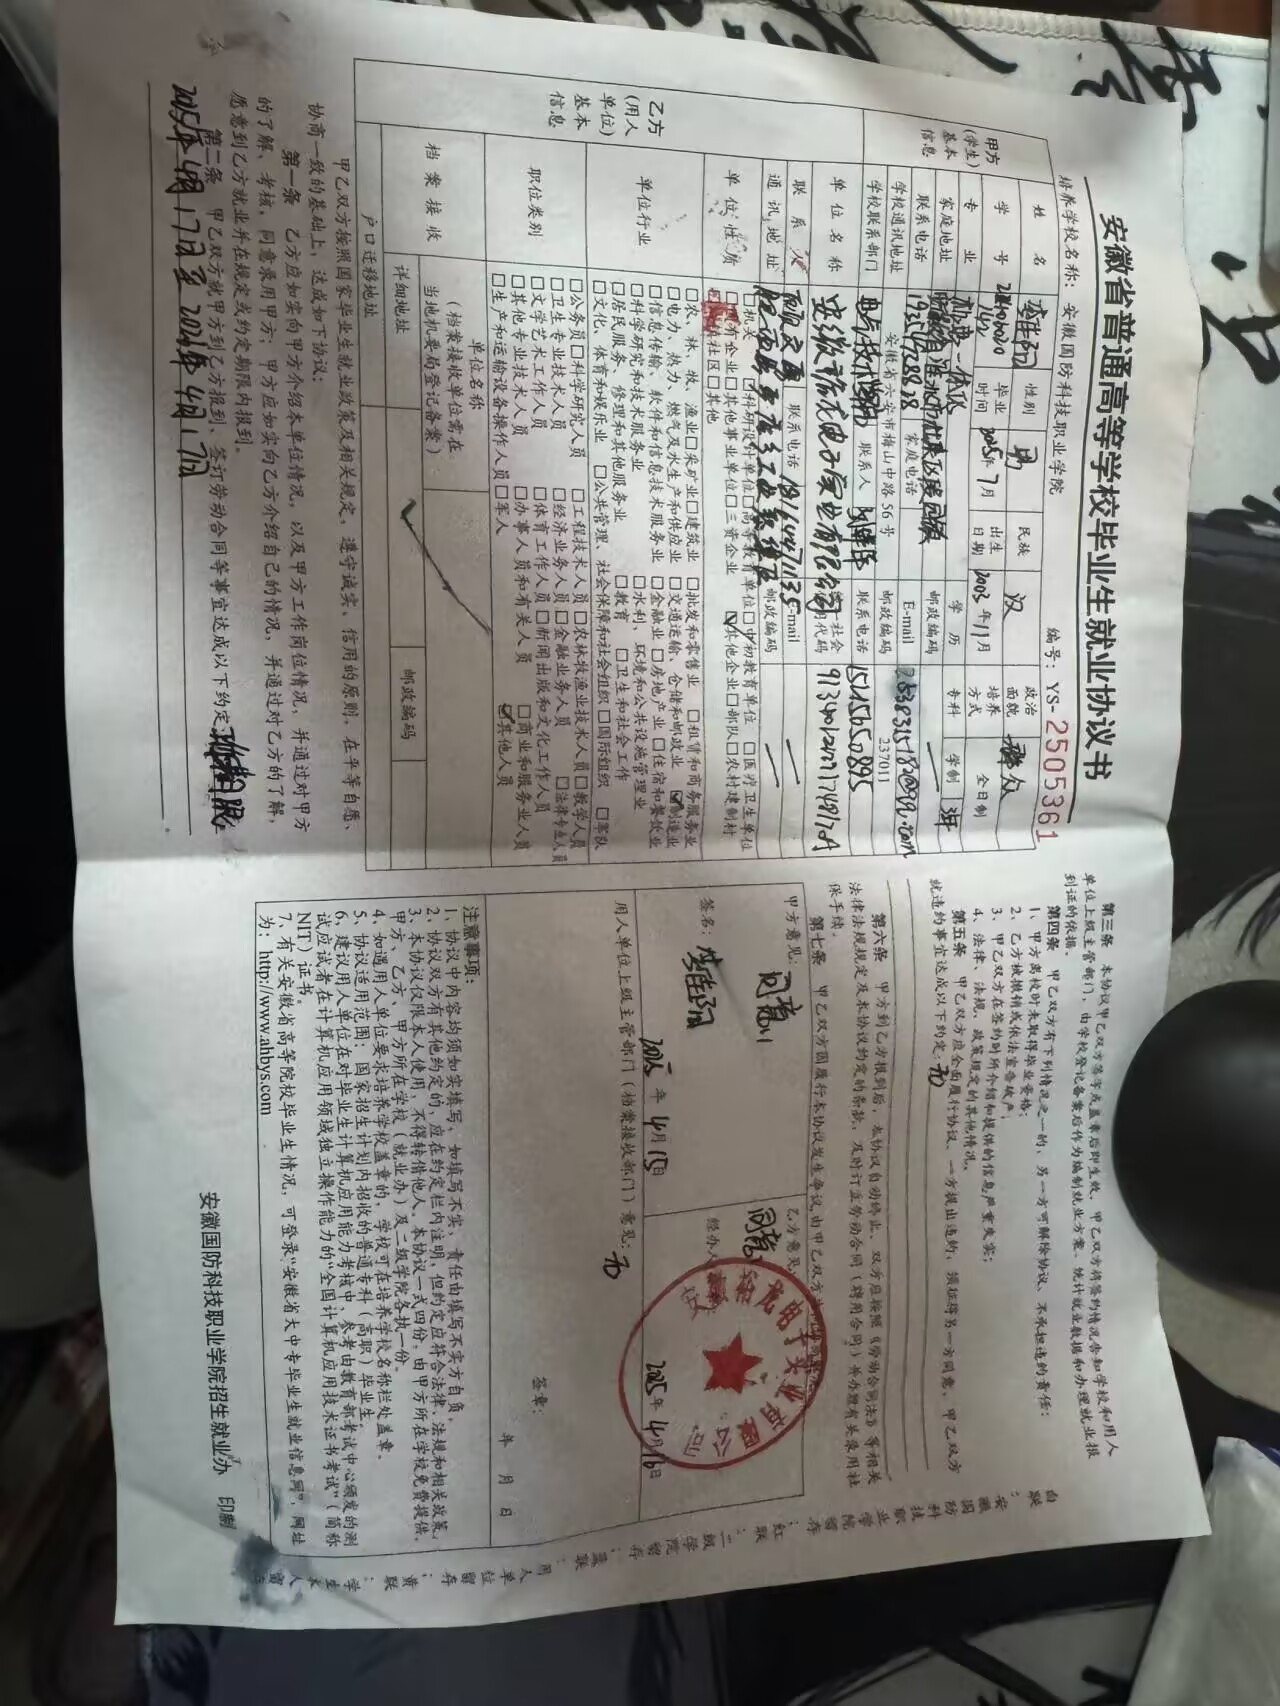 安徽省普通高等学校毕业生就业协议书
培养学校名称：安徽国防科技职业学院
编号：YS-2505361
甲方(学生)基本信息
姓名 性别 男 民族 汉 政治面貌 群众
学号 毕业时间 2025年7月 出生日期 2003年11月 培养方式 全日制
专业 机电一体化 学历 专科 学制
家庭地址 邮政编码
联系电话 家庭电话 E-mail
学校通讯地址 安徽省六安市梅山中路56号 邮政编码 237011
学校联系部门 联系人 联系电话 15156550895
乙方(用人单位)基本信息
单位名称
联系人 联系电话 E-mail
通讯地址 邮政编码
单位性质
□机关 □科研设计单位 □高等教育单位 □中初教育单位 □医疗卫生单位
□其他事业单位 □三资企业 ☑其他企业 □部队 □农村建制村
□其他
单位行业
□农、林、牧、渔业 □采矿业 □建筑业 □批发和零售业 □租赁和商务服务业
□电力、热力、燃气及水生产和供应业 □交通运输、仓储和邮政业 ☑制造业
□信息传输、软件和信息技术服务业 □金融业 □房地产业 □住宿和餐饮业
□科学研究和技术服务业 □水利、环境和公共设施管理业
□居民服务、修理和其他服务业 □教育 □卫生和社会工作
□文化、体育和娱乐业 □公共管理、社会保障和社会组织 □国际组织 □军队
职位类别
□公务员 □科学研究人员 □工程技术人员 □农林牧渔业技术人员 □教学人员
□卫生专业技术人员 □经济业务人员 □金融业务人员 □法律专业人员
□文学艺术工作人员 □体育工作人员 □新闻出版和文化工作人员
□其他专业技术人员 □办事人员和有关人员 □商业和服务业人员
□生产和运输设备操作人员 □军人 ☑其他人员
档案接收
单位名称
(档案接收单位需在
当地机要局登记备案)
详细地址 邮政编码
户口迁移地址
甲乙双方按照国家毕业生就业政策及相关规定，遵守诚实、信用的原则，在平等自愿、
协商一致的基础上，达成如下协议：
第一条 乙方应如实向甲方介绍本单位情况，以及甲方工作岗位情况，并通过对甲方
的了解、考核，同意录用甲方；甲方应如实向乙方介绍自己的情况，并通过对乙方的了解，
愿意到乙方就业并在规定或约定期限内报到。
第二条 甲乙双方就甲方到乙方报到、签订劳动合同等事宜达成以下约定
第三条 本协议甲乙双方签字或盖章后即生效，甲乙双方将签约情况告知学校和用人
单位上级主管部门，由学校登记备案后作为编制就业方案、统计就业数据和办理就业报
到证的依据。
第四条 甲乙双方有下列情况之一的，另一方可解除协议，不承担违约责任：
1、甲方离校时未取得毕业资格；
2、乙方被撤销或依法宣告破产；
3、甲乙双方在签约时所介绍和提供的信息严重失实；
4、法律、法规、政策规定的其他情况。
第五条 甲乙双方应全面履行协议，一方提出违约，须征得另一方同意，甲乙双方
就违约事宜达成以下约定：无
第六条 甲方到乙方报到后，本协议自动终止，双方应按照《劳动合同法》等相关
法律法规规定及本协议约定的条款，及时订立劳动合同（聘用合同）并办理有关录用社
保手续。
第七条 甲乙双方因履行本协议发生争议，由甲乙双方
甲方意见： 同意
签名：
2025年4月15日
乙方意见： 同意
经办人
2025年4月16日
用人单位上级主管部门（档案接收部门）意见：无
签章：
年 月 日
注意事项：
1、协议中内容均须如实填写，如填写不实，责任由填写不实方自负。
2、协议双方有其他约定的，应在约定栏内注明，但约定应符合法律、法规和相关政策。
3、本协议仅限本人使用，不得转借他人。本协议一式四份，由甲方所在学校免费提供，
甲方、乙方、甲方所在学校（就业办）及二级学院各执一份。
4、如遇用人单位要求培养学校盖章的，学校可在培养学校名称栏处盖章。
5、协议适用范围：国家招生计划内招收的普通专科（高职）毕业生。
6、建议用人单位在对毕业生计算机应用能力考核中，参考由教育部考试中心颁发的测
试应试者在计算机应用领域独立操作能力的“全国计算机应用技术证书考试”（简称
NIT）证书。
7、有关安徽省高等院校毕业生情况，可登录“安徽省大中专毕业生就业信息网”，网址
为：http://www.ahbys.com
安徽国防科技职业学院招生就业办 印制